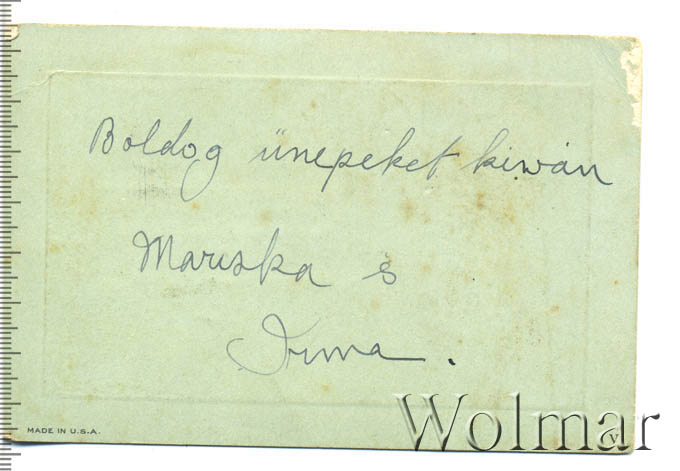 Boldog ünepeket kiwán
Mariska s
Irma.
MADE IN U.S.A.
Wolmar
V